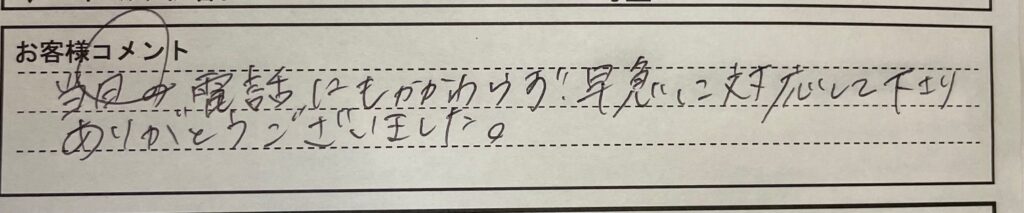 お客様コメント
当日の電話にもかかわらず早急に対応して下さり
ありがとうございました。